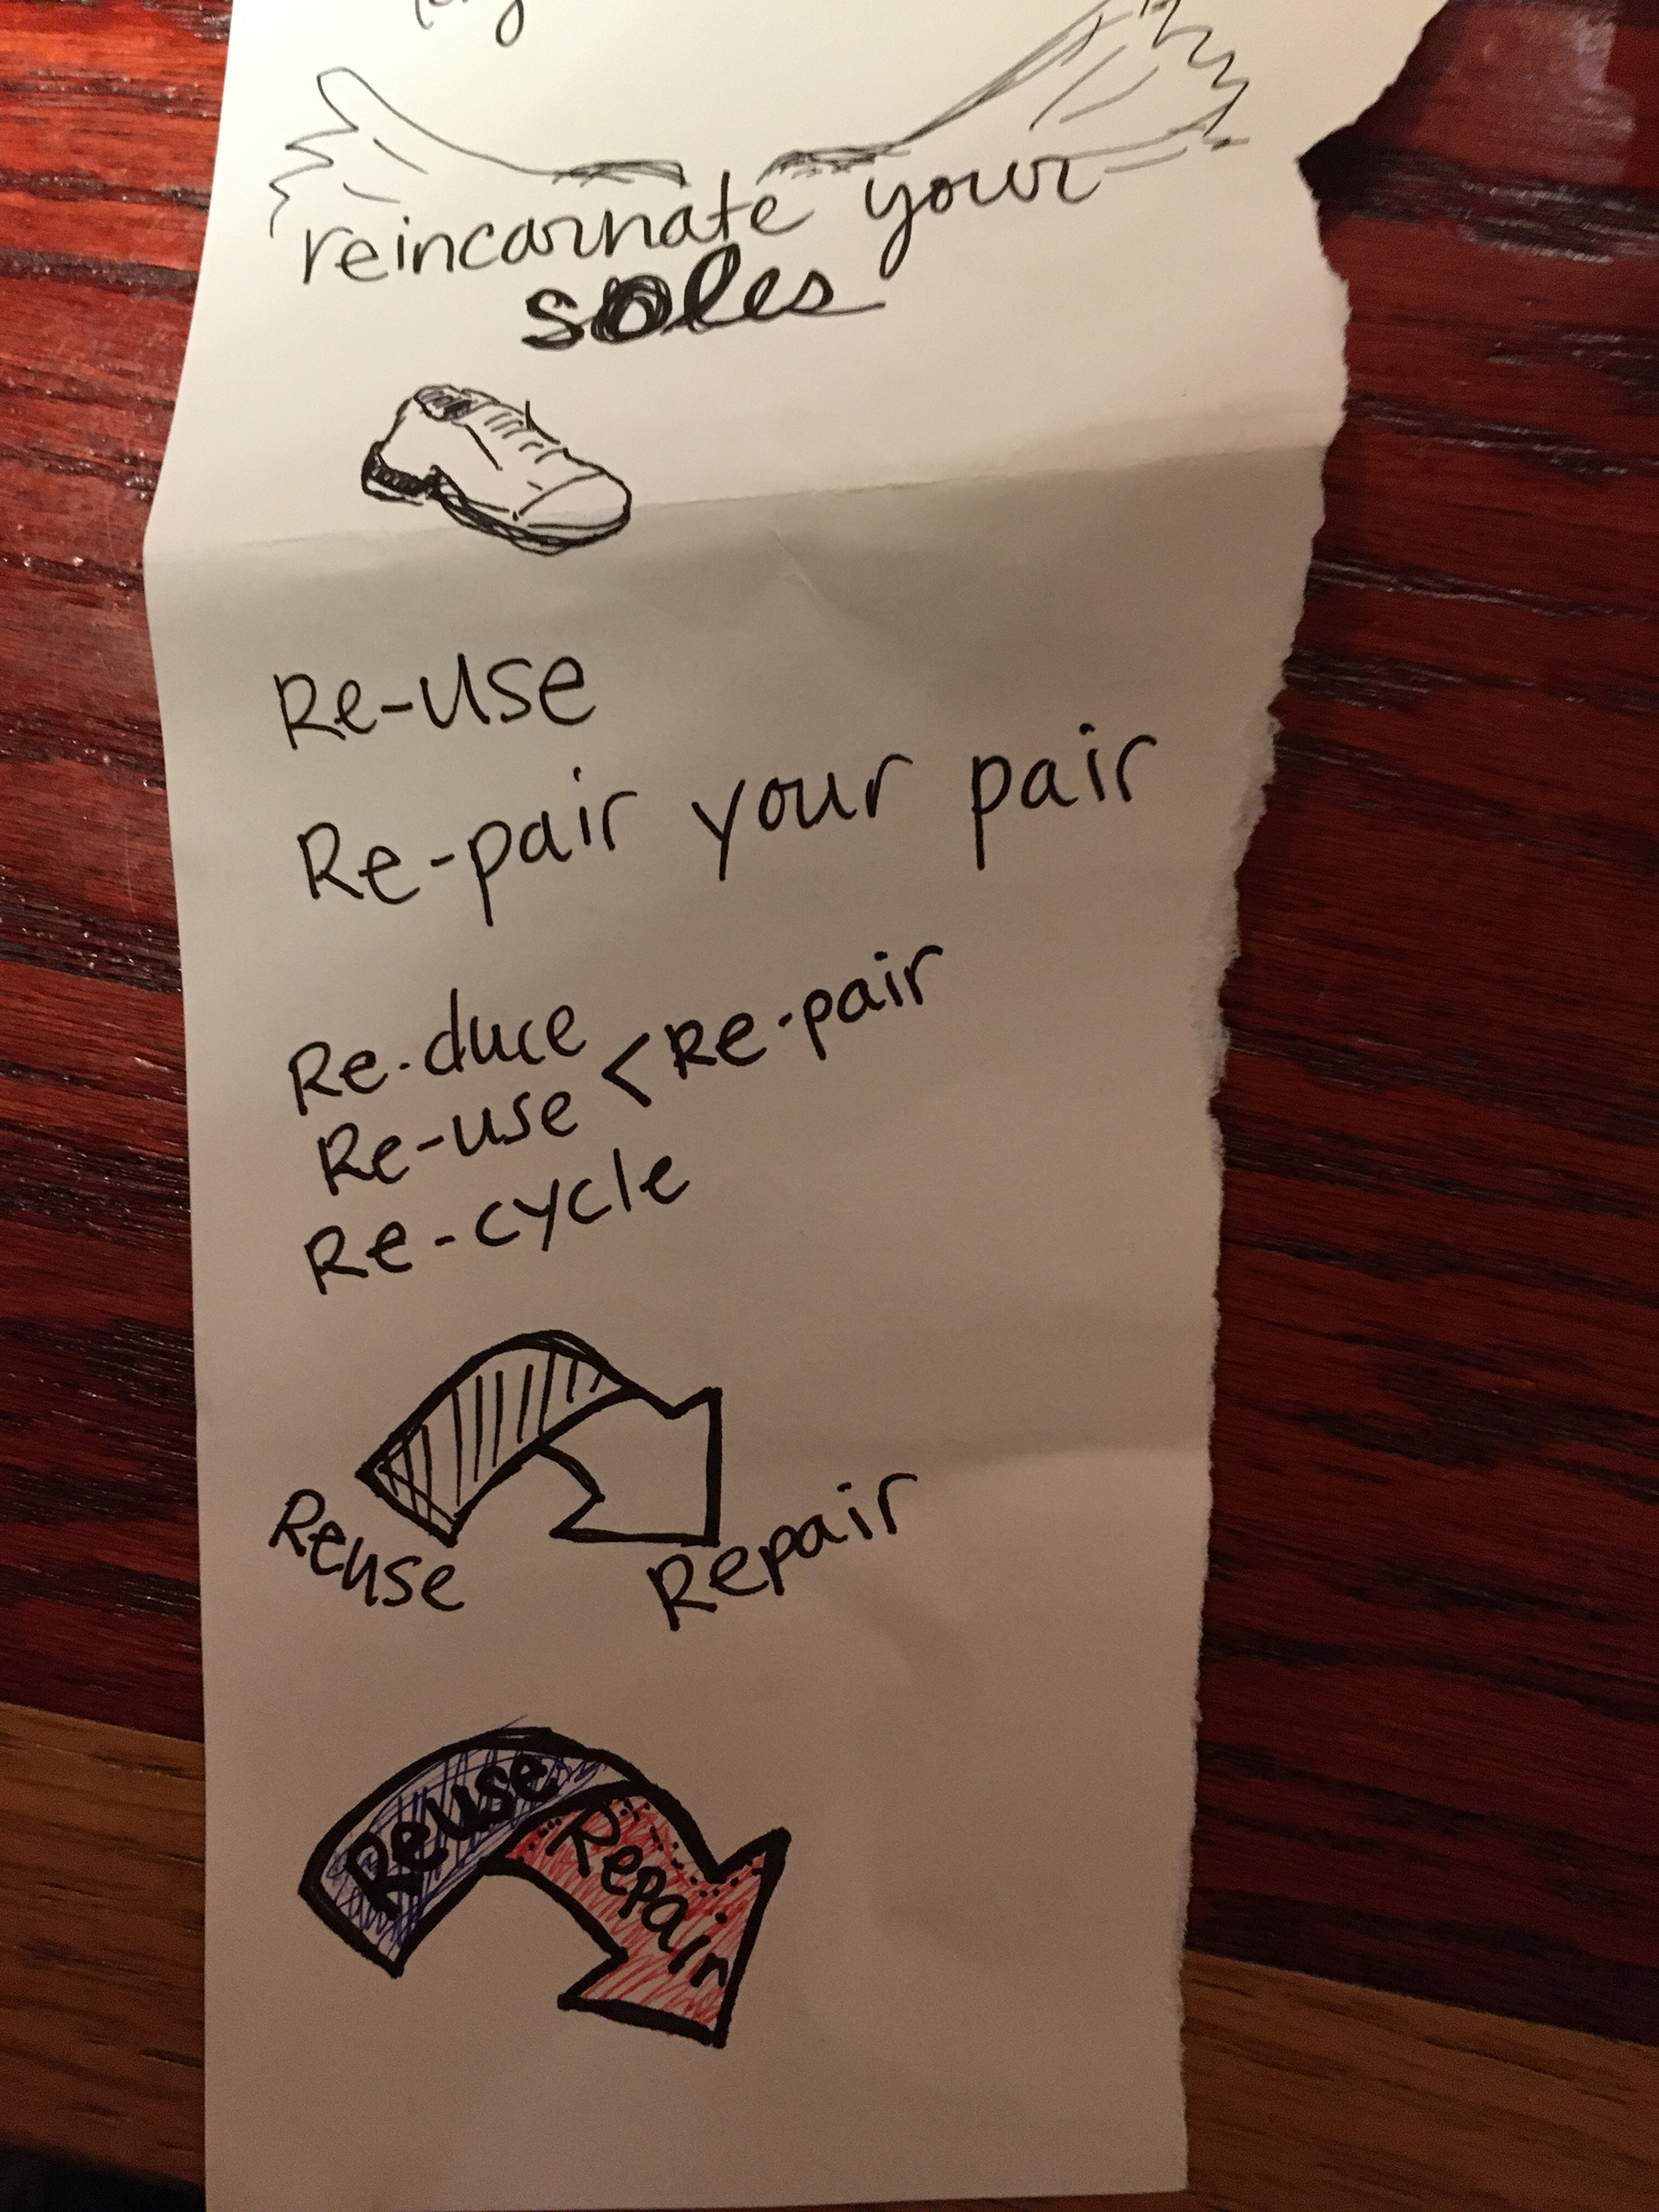 reincarnate your
soles
Re-use
Re-pair your pair
Re-duce
Re-use < Re-pair
Re-cycle
Reuse
Repair
Reuse
Repair